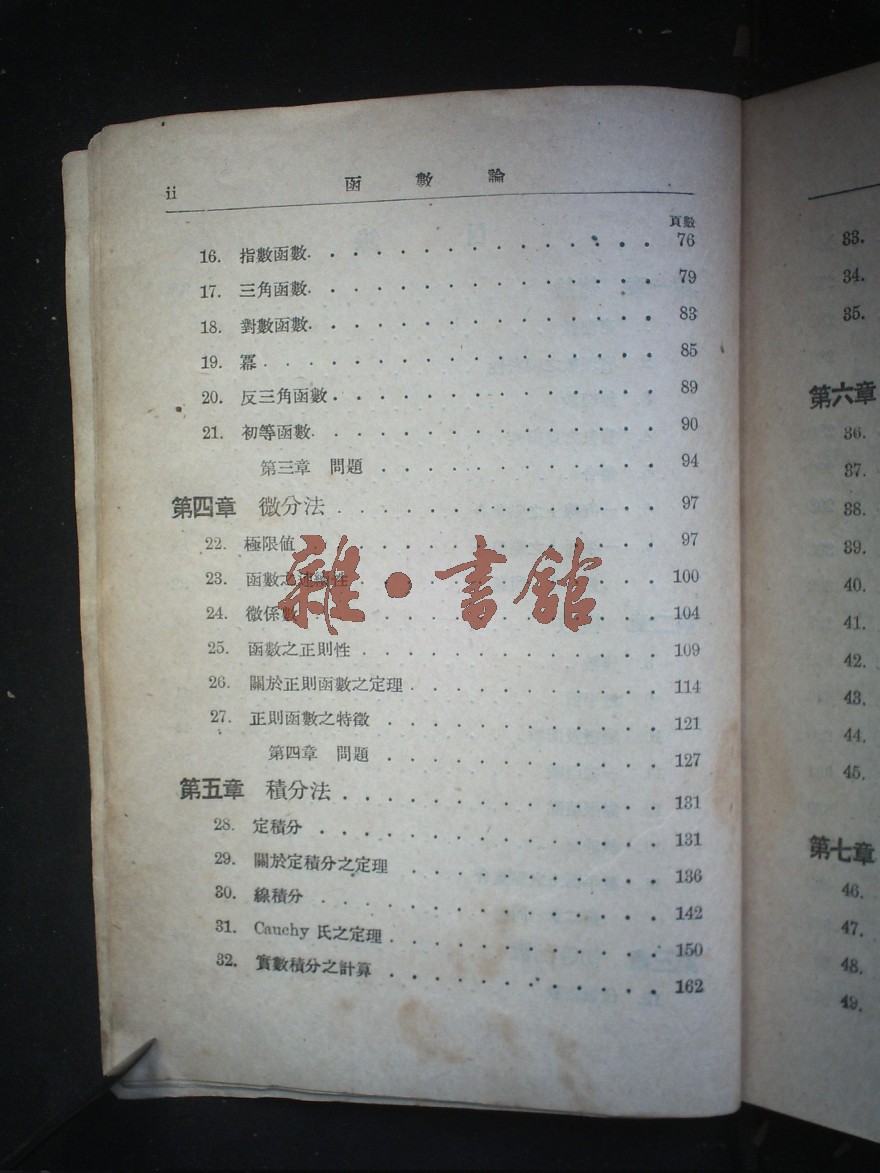 ii 函數論
頁數
16. 指數函數 76
17. 三角函數 79
18. 對數函數 83
19. 冪 85
20. 反三角函數 89
21. 初等函數 90
第三章 問題 94
第四章 微分法 97
22. 極限值 97
23. 函數之連續性 100
24. 微係數 104
25. 函數之正則性 109
26. 關於正則函數之定理 114
27. 正則函數之特徵 121
第四章 問題 127
第五章 積分法 131
28. 定積分 131
29. 關於定積分之定理 136
30. 線積分 142
31. Cauchy 氏之定理 150
32. 實數積分之計算 162
雜·書館
33.
34.
35.
第六章
36.
37.
38.
39.
40.
41.
42.
43.
44.
45.
第七章
46.
47.
48.
49.